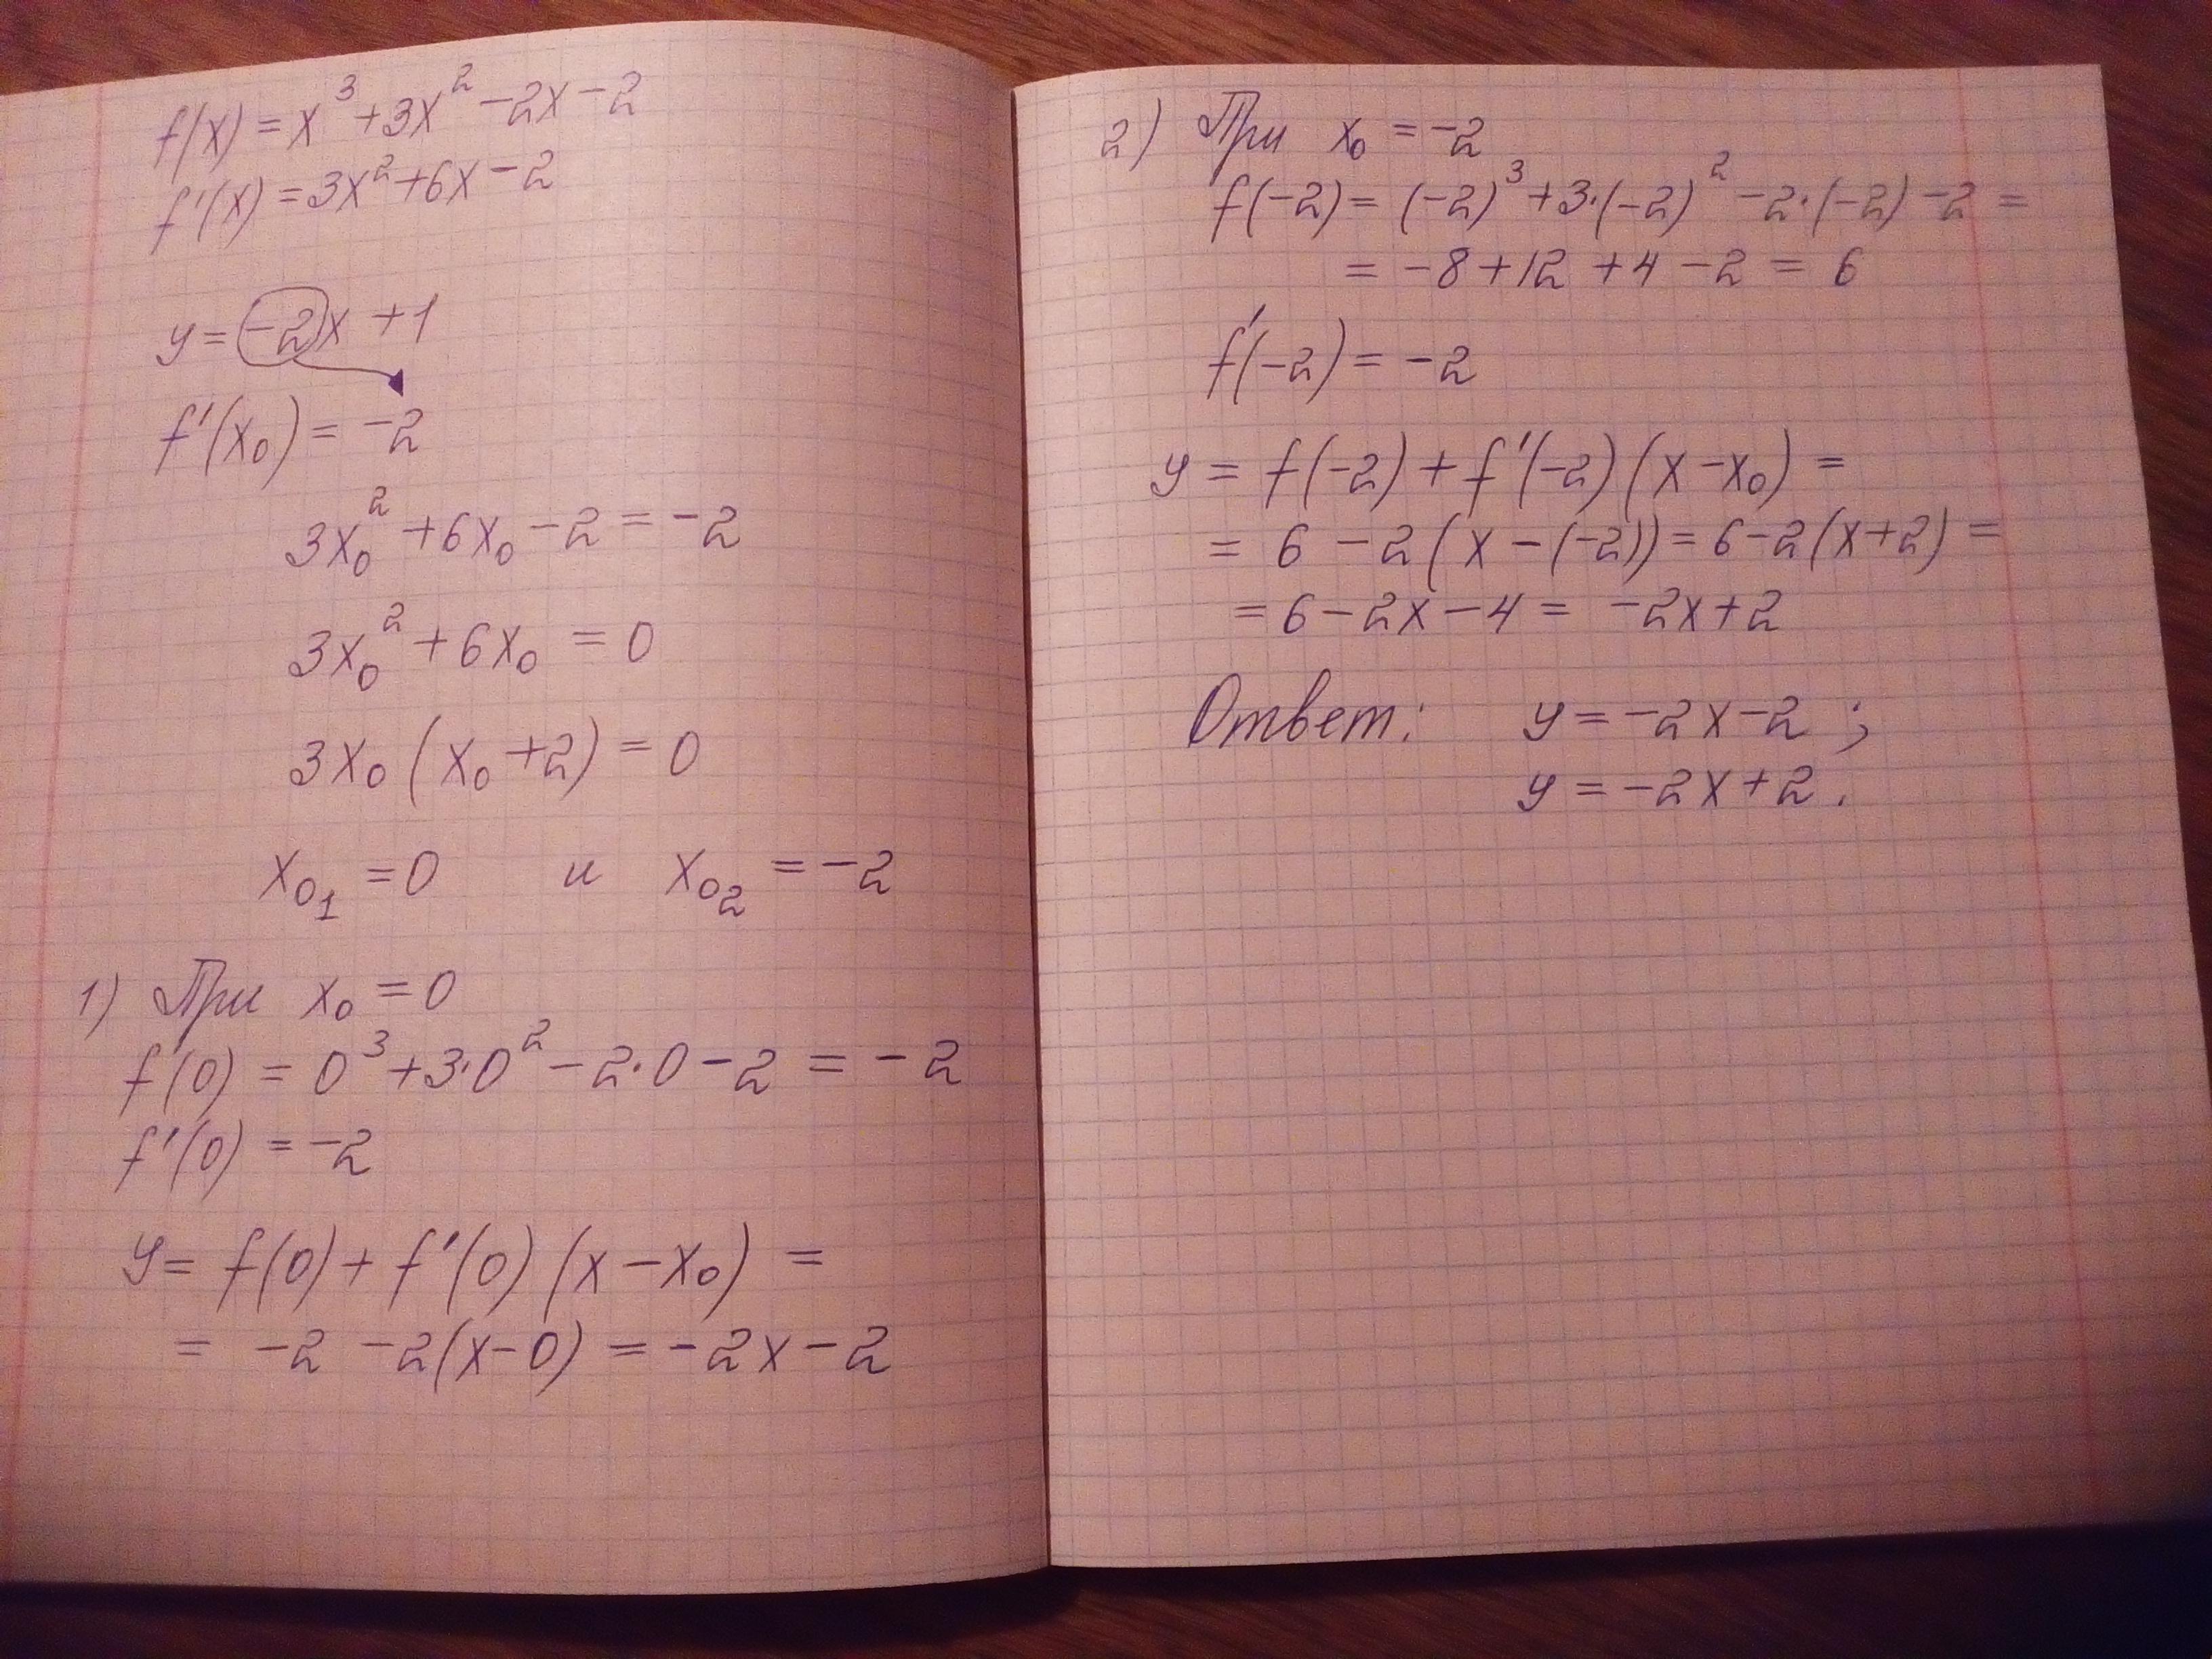 f(x) = x³ + 3x² - 2x - 2
f'(x) = 3x² + 6x - 2
y = -2x + 1
f'(x₀) = -2
3x₀² + 6x₀ - 2 = -2
3x₀² + 6x₀ = 0
3x₀(x₀ + 2) = 0
x₀₁ = 0 и x₀₂ = -2
1) При x₀ = 0
f(0) = 0³ + 3·0² - 2·0 - 2 = -2
f'(0) = -2
y = f(0) + f'(0)(x - x₀) =
= -2 -2(x-0) = -2x - 2
2) При x₀ = -2
f(-2) = (-2)³ + 3·(-2)² - 2·(-2) - 2 =
= -8 + 12 + 4 - 2 = 6
f'(-2) = -2
y = f(-2) + f'(-2)(x - x₀) =
= 6 - 2(x - (-2)) = 6 - 2(x+2) =
= 6 - 2x - 4 = -2x + 2
Ответ: y = -2x - 2 ;
y = -2x + 2 .